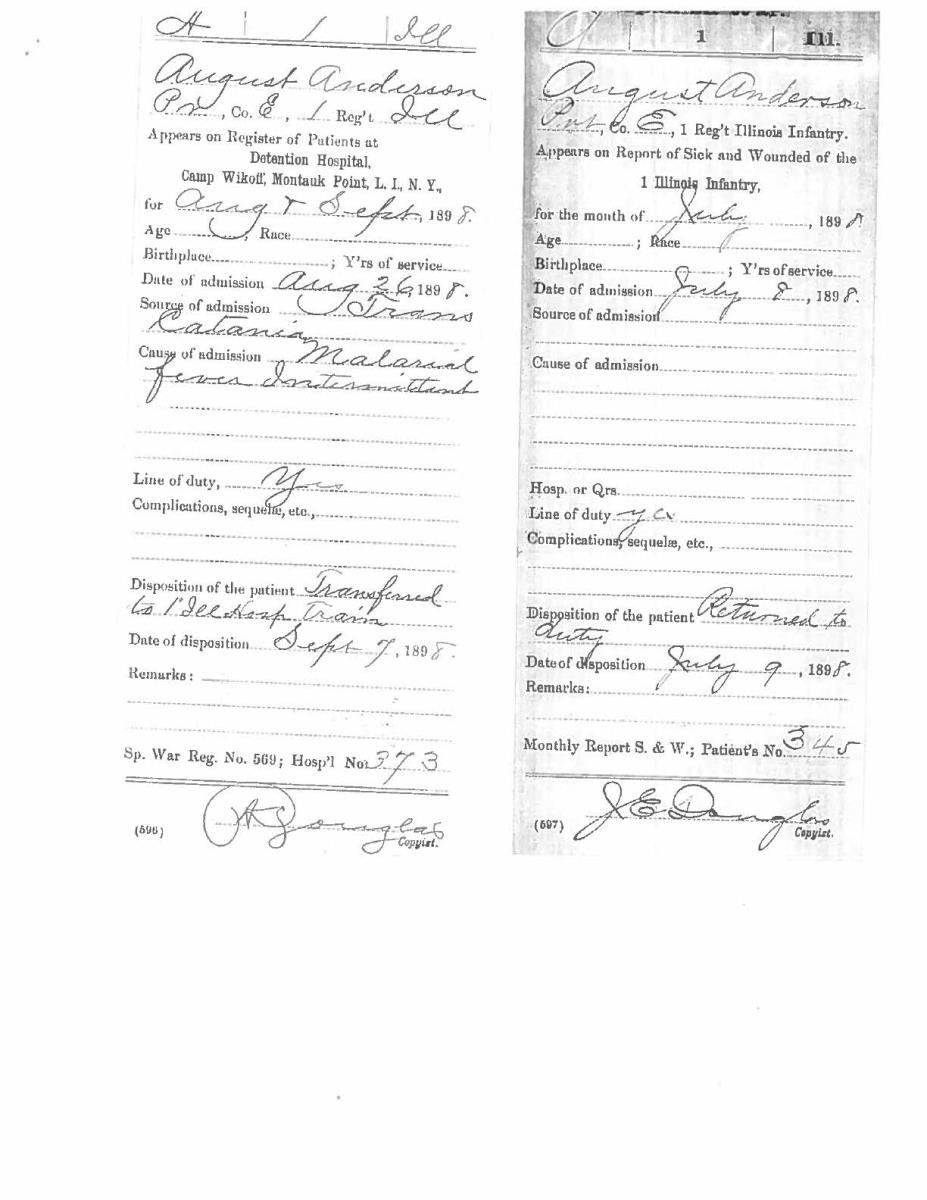 A | 1 | Ill
August Anderson
Pvt, Co. E, 1 Reg't Ill
Appears on Register of Patients at
Detention Hospital,
Camp Wikoff, Montauk Point, L. I., N. Y.,
for Aug & Sept, 1898.
Age ; Race
Birthplace ; Y'rs of service
Date of admission Aug 26, 1898.
Source of admission Trans
Catania
Cause of admission Malarial
fever Intermittent
Line of duty, Yes
Complications, sequelæ, etc.,
Disposition of the patient Transferred
to 1" Ill Hosp. Train
Date of disposition Sept 7, 1898.
Remarks:
Sp. War Reg. No. 569; Hosp'l No. 373
(596)
Douglas
Copyist.
A | 1 | Ill.
August Anderson
Pvt, Co. E, 1 Reg't Illinois Infantry.
Appears on Report of Sick and Wounded of the
1 Illinois Infantry,
for the month of July, 1898
Age ; Race
Birthplace ; Y'rs of service
Date of admission July 8, 1898.
Source of admission
Cause of admission
Hosp. or Qrs.
Line of duty yes
Complications, sequelæ, etc.,
Disposition of the patient Returned to
duty
Date of disposition July 9, 1898.
Remarks:
Monthly Report S. & W.; Patient's No. 345
(597) J E Douglas
Copyist.